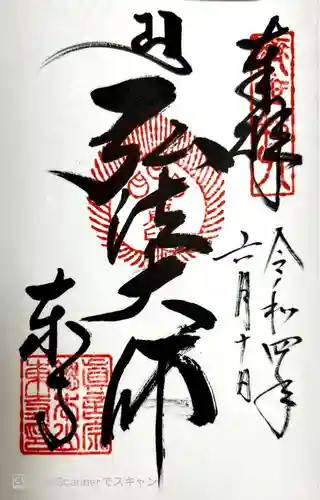 奉拝
令和四年
六月十日
弘法大師
東寺
Scannerでスキャン